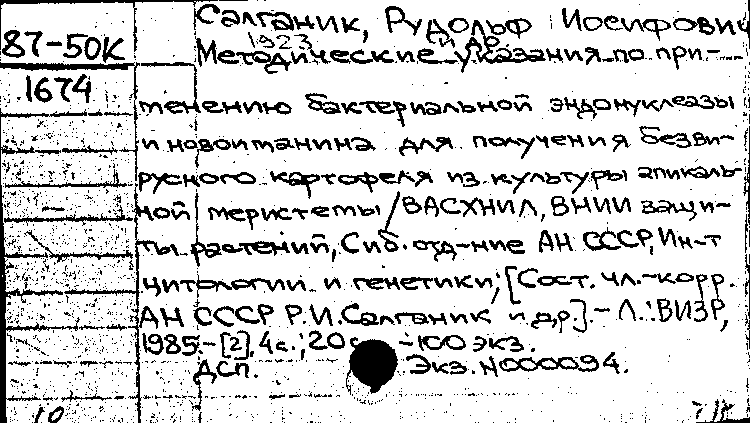 Салганик, Рудольф Иосифович
1923 и др.
87-50К
Методические указания по при-
1674
менению бактериальной эндонуклеазы
и новоиманина для получения безви-
русного картофеля из культуры апикаль-
ной меристемы/ВАСХНИЛ, ВНИИ защи-
ты растений, Сиб. отд-ние АН СССР, Ин-т
цитологии и генетики; [Сост. чл.-корр.
АН СССР Р.И.Салганик и др].- Л.:ВИЗР,
1985.-[2], 4с.; 20с -100 экз.
ДСП. Экз. N000094.
10